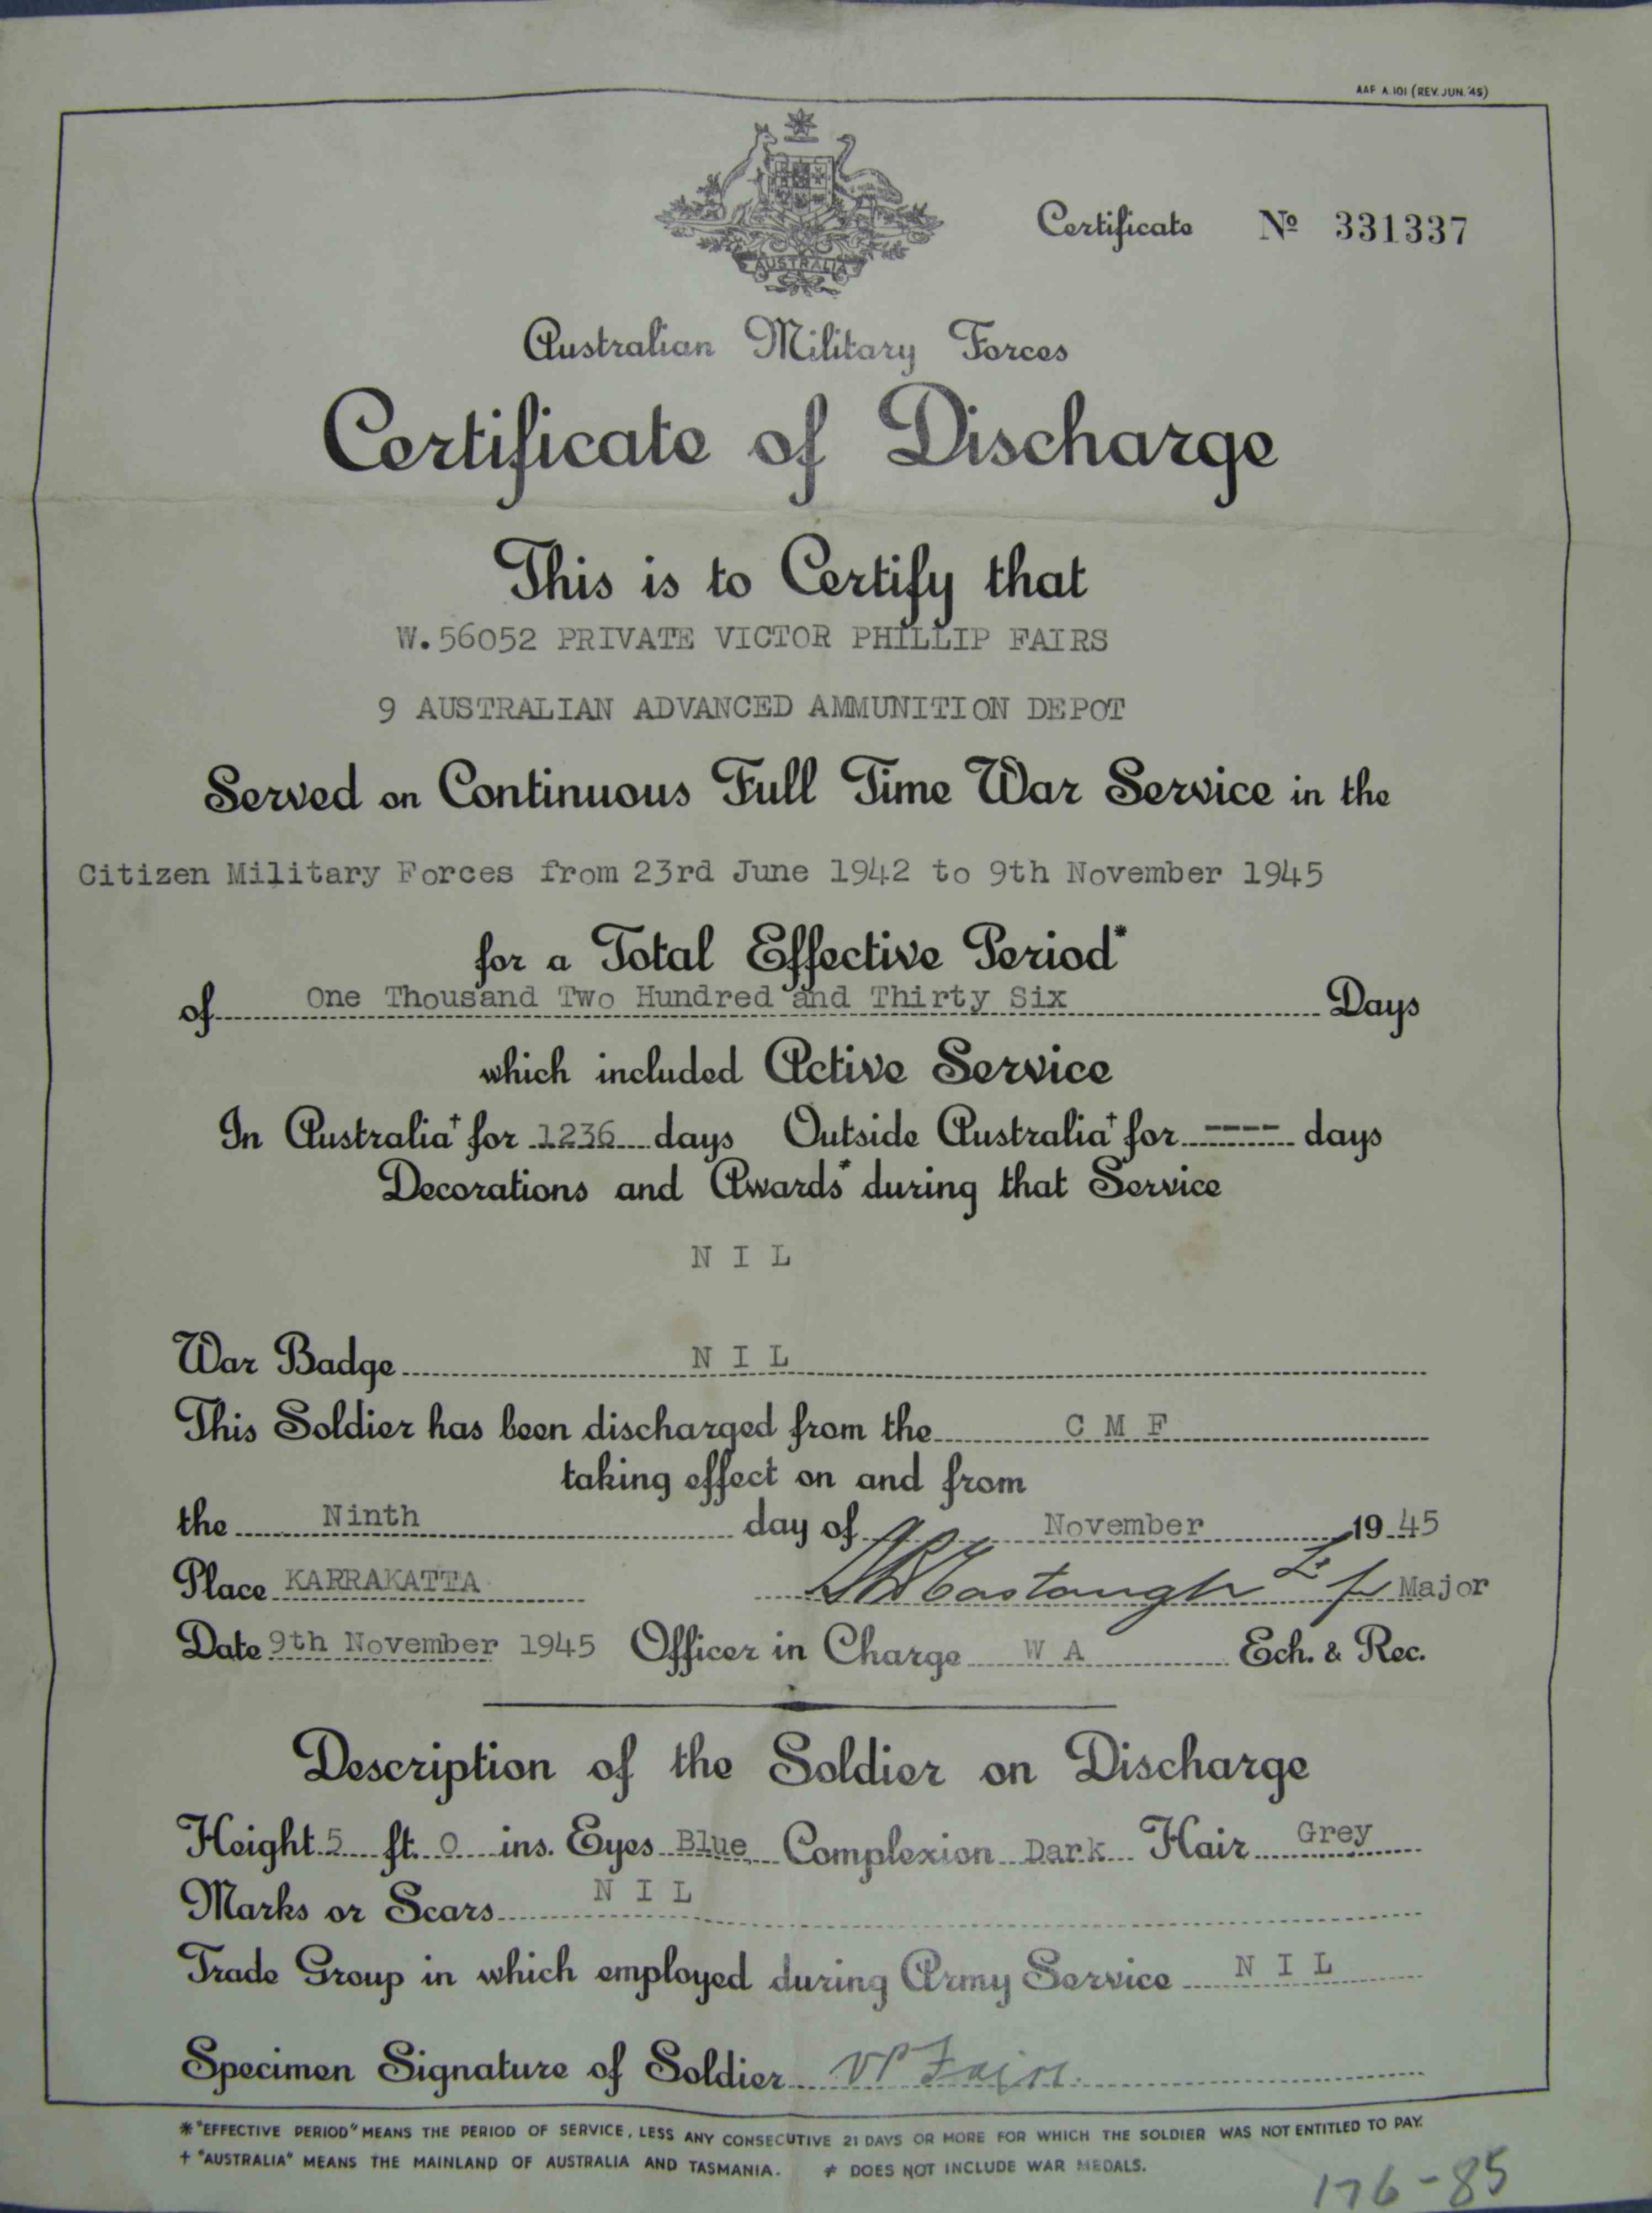 AAF A.101 (REV. JUN. '45)
AUSTRALIA
Certificate Nº 331337
Australian Military Forces
Certificate of Discharge
This is to Certify that
W.56052 PRIVATE VICTOR PHILLIP FAIRS
9 AUSTRALIAN ADVANCED AMMUNITION DEPOT
Served on Continuous Full Time War Service in the
Citizen Military Forces from 23rd June 1942 to 9th November 1945
for a Total Effective Period*
of One Thousand Two Hundred and Thirty Six Days
which included Active Service
In Australia† for 1236 days Outside Australia† for ---- days
Decorations and Awards* during that Service
N I L
War Badge N I L
This Soldier has been discharged from the C M F
taking effect on and from
the Ninth day of November 1945
Place KARRAKATTA Major
Date 9th November 1945 Officer in Charge W A Ech. & Rec.
Description of the Soldier on Discharge
Height 5 ft. 0 ins. Eyes Blue Complexion Dark Hair Grey
Marks or Scars N I L
Trade Group in which employed during Army Service N I L
Specimen Signature of Soldier VP Fairs.
* "EFFECTIVE PERIOD" MEANS THE PERIOD OF SERVICE, LESS ANY CONSECUTIVE 21 DAYS OR MORE FOR WHICH THE SOLDIER WAS NOT ENTITLED TO PAY.
† "AUSTRALIA" MEANS THE MAINLAND OF AUSTRALIA AND TASMANIA. ≠ DOES NOT INCLUDE WAR MEDALS.
176-85